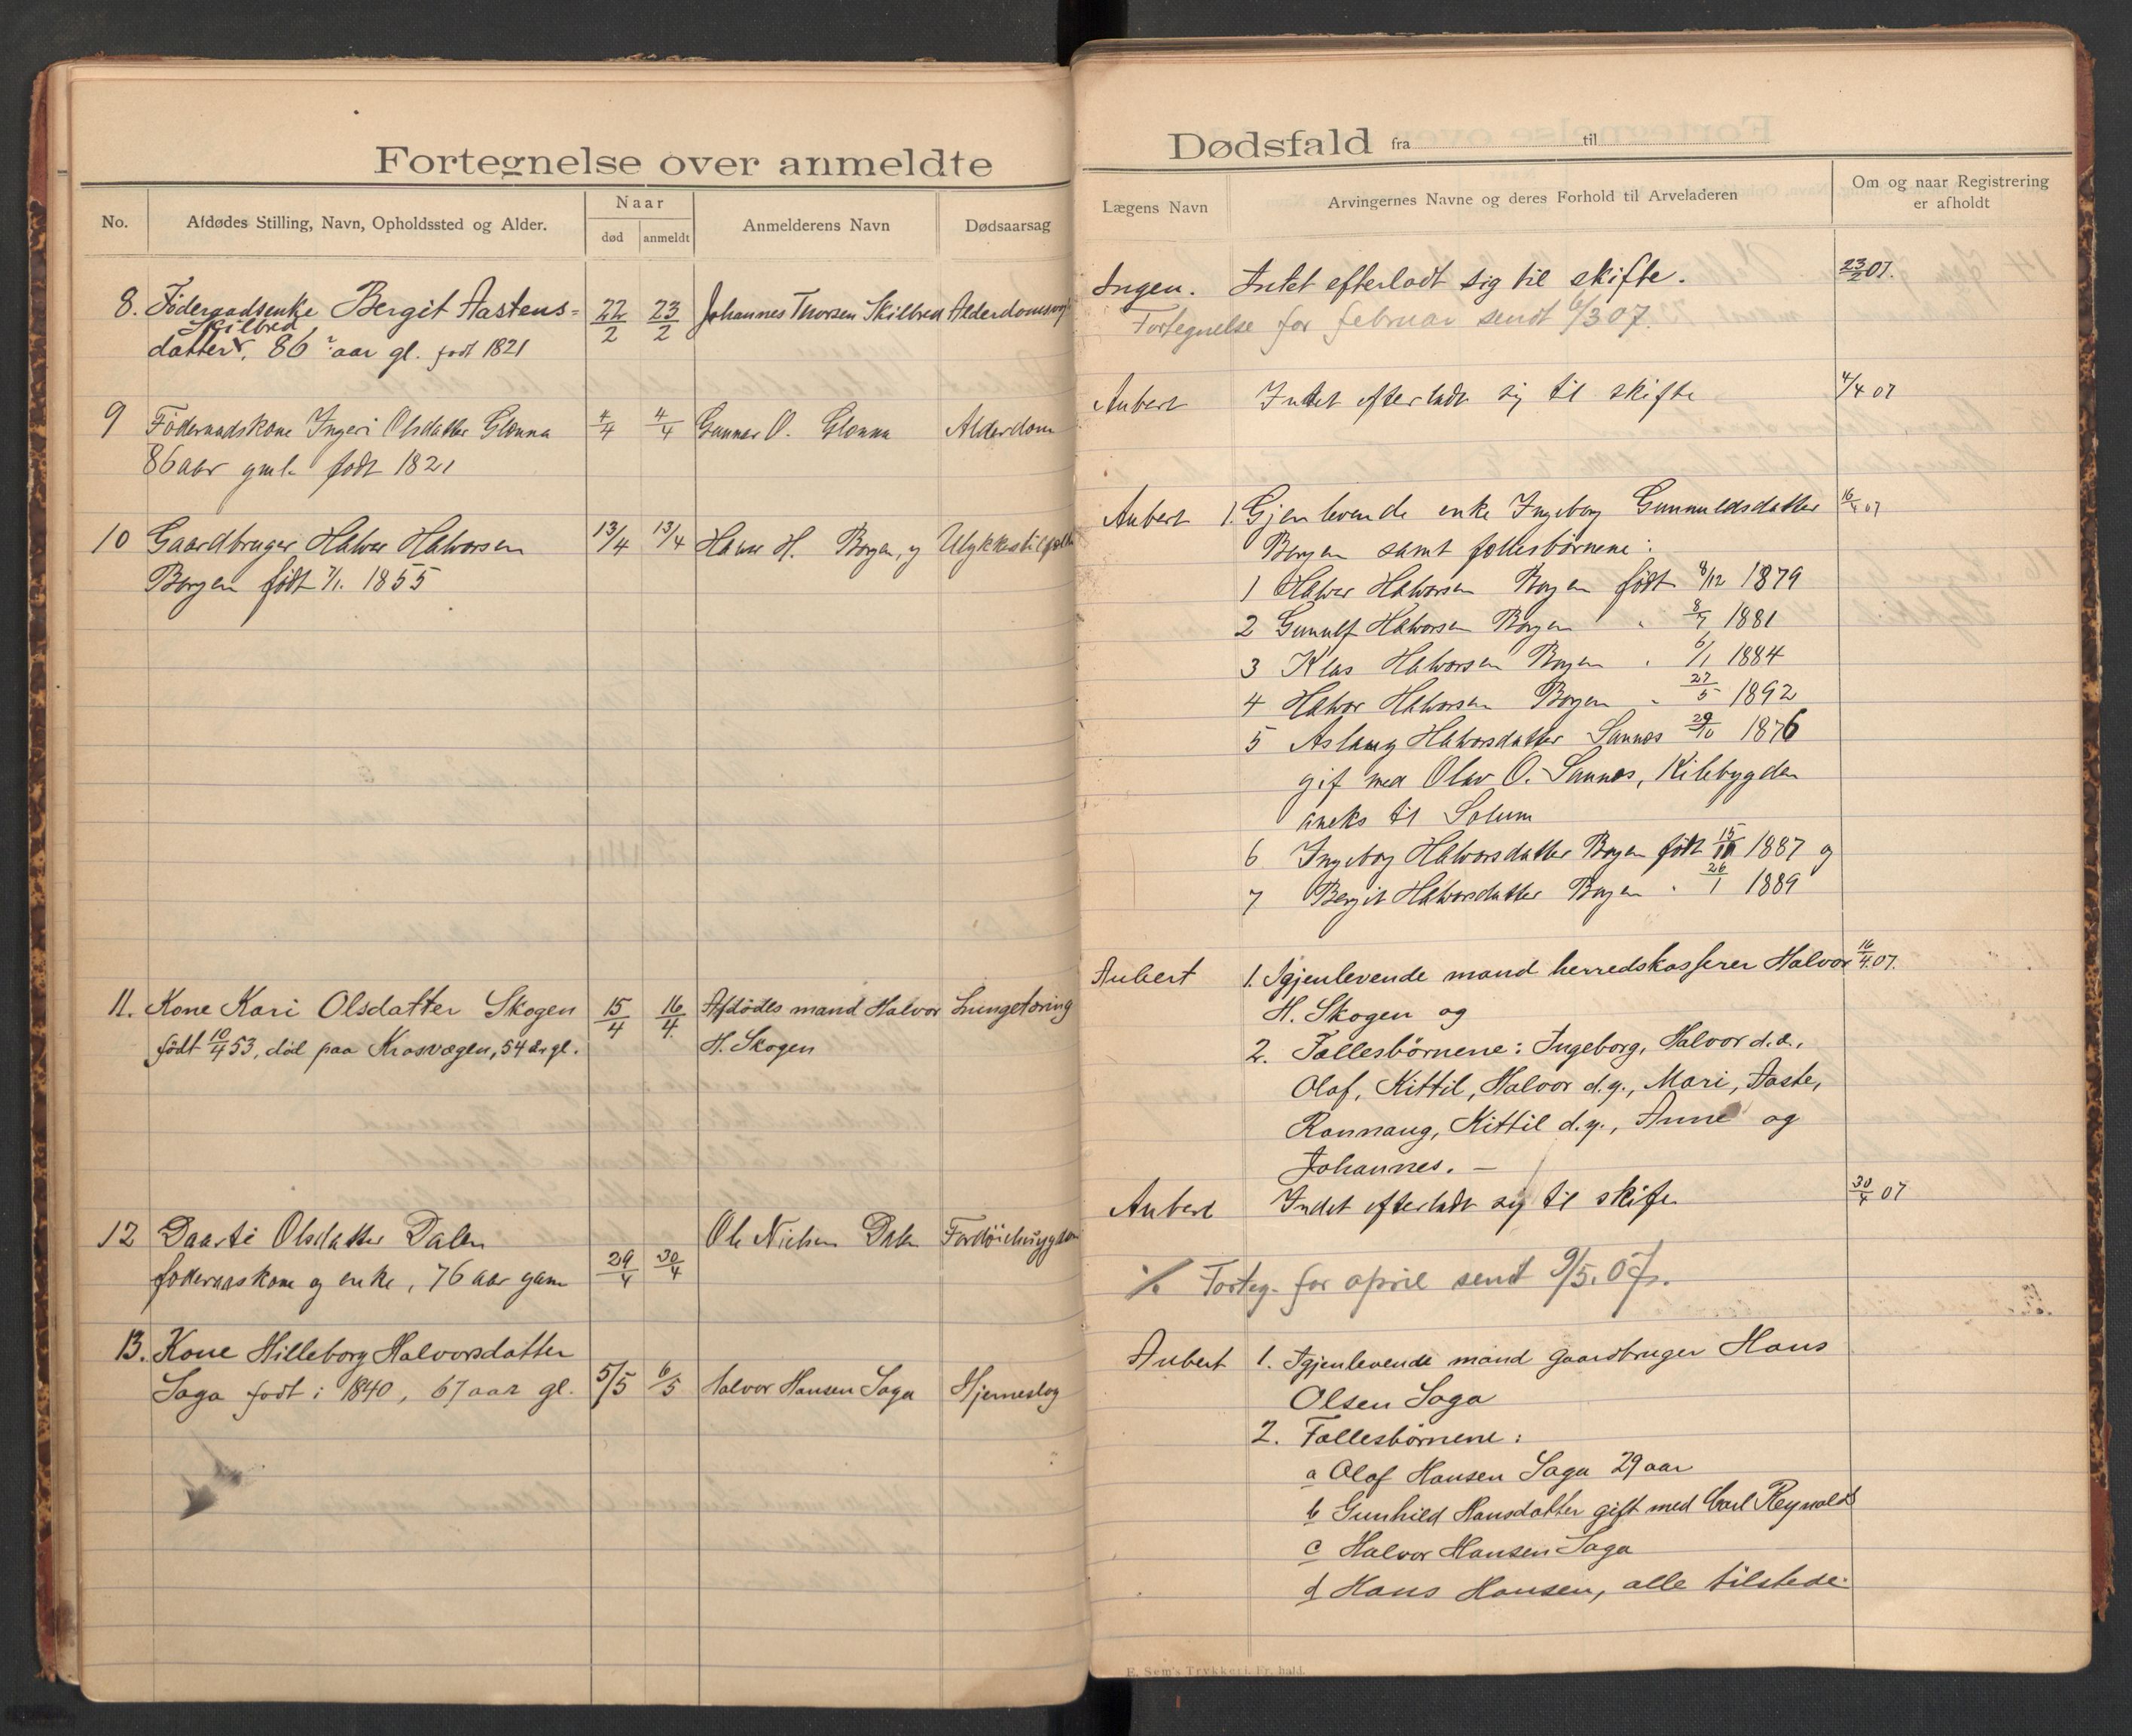 Fortegnelse over anmeldte
No.
Afdødes Stilling, Navn, Opholdssted og Alder.
Naar
død
anmeldt
Anmelderens Navn
Dødsaarsag
8. Föderaadsenke Bergit Aastens= 22/2 23/2 Johannes Thorsen Skilbred
Skilbred
datter, 86 aar gl. født 1821
9 Föderaadskone Ingeri Olsdatter Glenna 4/4 4/4 Gunnar O. Glenna Alderdom
86 aar gml. født 1821
10 Gaardbruger Halvor Halvorsen 13/4 13/4 H. Borgen, Ulykkestilfælde
Borgen født 7/1. 1855
11. Kone Kari Olsdatter Skogen 15/4 16/4. Afdødes mand Halvor Lungetæring
født 10/4 53, død paa Krosvegen, 54 år gl. H. Skogen
12 Daarte Olsdatter Dalen Ole Nielsen Dalen
foderaaskone og enke, 76 aar gam 29/4 30/4
13. Kone Hilleborg Halvorsdatter
Saga født i 1840, 67 aar gl. 5/5 6/5 Halvor Hansen Saga Hjerneslag
Dødsfald fra til
Lægens Navn
Arvingernes Navne og deres Forhold til Arveladeren
Om og naar Registrering
er afholdt
Ingen. Intet efterladt sig til skifte. 23/2 07.
Fortegnelse for februar sendt 6/3 07.
Aubert Intet efterladt sig til skifte 4/4 07
Aubert 1. Gjenlevende enke Ingeborg Gunnuldsdatter 16/4 07
Borgen samt fællesbörnene:
1 Halvor Halvorsen Borgen født 8/12 1879
2 Gunulf Halvorsen Borgen " 8/7 1881
3 Klas Halvorsen Borgen " 6/1 1884
4 Halvor Halvorsen Borgen " 27/5 1892
5 Aslaug Halvorsdatter Sannes 29/10 1876
gif med Olav O. Sannes, Kilebygden
aneks til Solum
6 Ingeborg Halvorsdatter Borgen født 1887 og
7 Bergit Halvorsdatter Borgen " 26/1 1889
Aubert 1. Igjenlevende mand herredskasserer Halvor 16/4.07.
H. Skogen og
2. Fællesbørnene: Ingeborg, Halvor d.æ.,
Olaf, Kittil, Halvor d.y., Mari, Aaste,
Rannaug, Kittil d.y., Anne og
Johannes. —
Aubert Indet efterladt sig til skifte 30/4 07
% Forteg. for april sendt 9/5.07.
Aubert 1. Igjenlevende mand gaardbruger Hans
Olsen Saga
2. Fællesbørnene:
a Olaf Hansen Saga 29 aar
b Gunhild Hansdatter gift med Carl Reynolds
c Halvor Hansen Saga
d Hans Hansen, alle tilstede.
E. Sem's Trykkeri. Fr.hald.